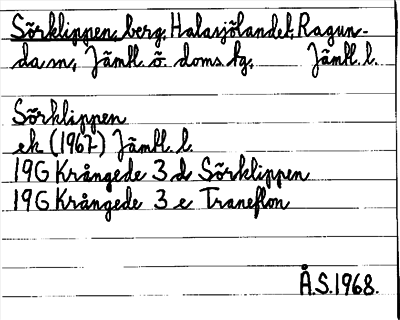 Sörklippen, berg, Halasjölandet, Ragun-
da sn, Jämtl. ö. doms. tg. Jämtl. l.
Sörklippen
ek (1967) Jämtl. l.
19G Krångede 3 d Sörklippen
19G Krångede 3 e Traneflon
Å.S.1968.